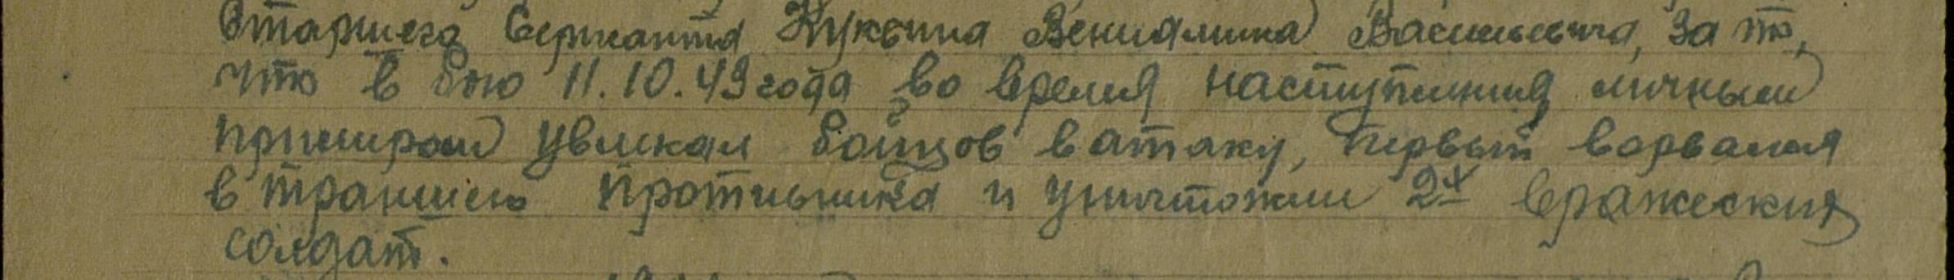 Старшего Сержанта Кукьина Вениамина Васильевича, за то,
что в бою 11.10.43 года во время наступления личным
примером увлекал бойцов в атаку, первым ворвался
в траншею противника и уничтожил 2х вражеских
солдат.